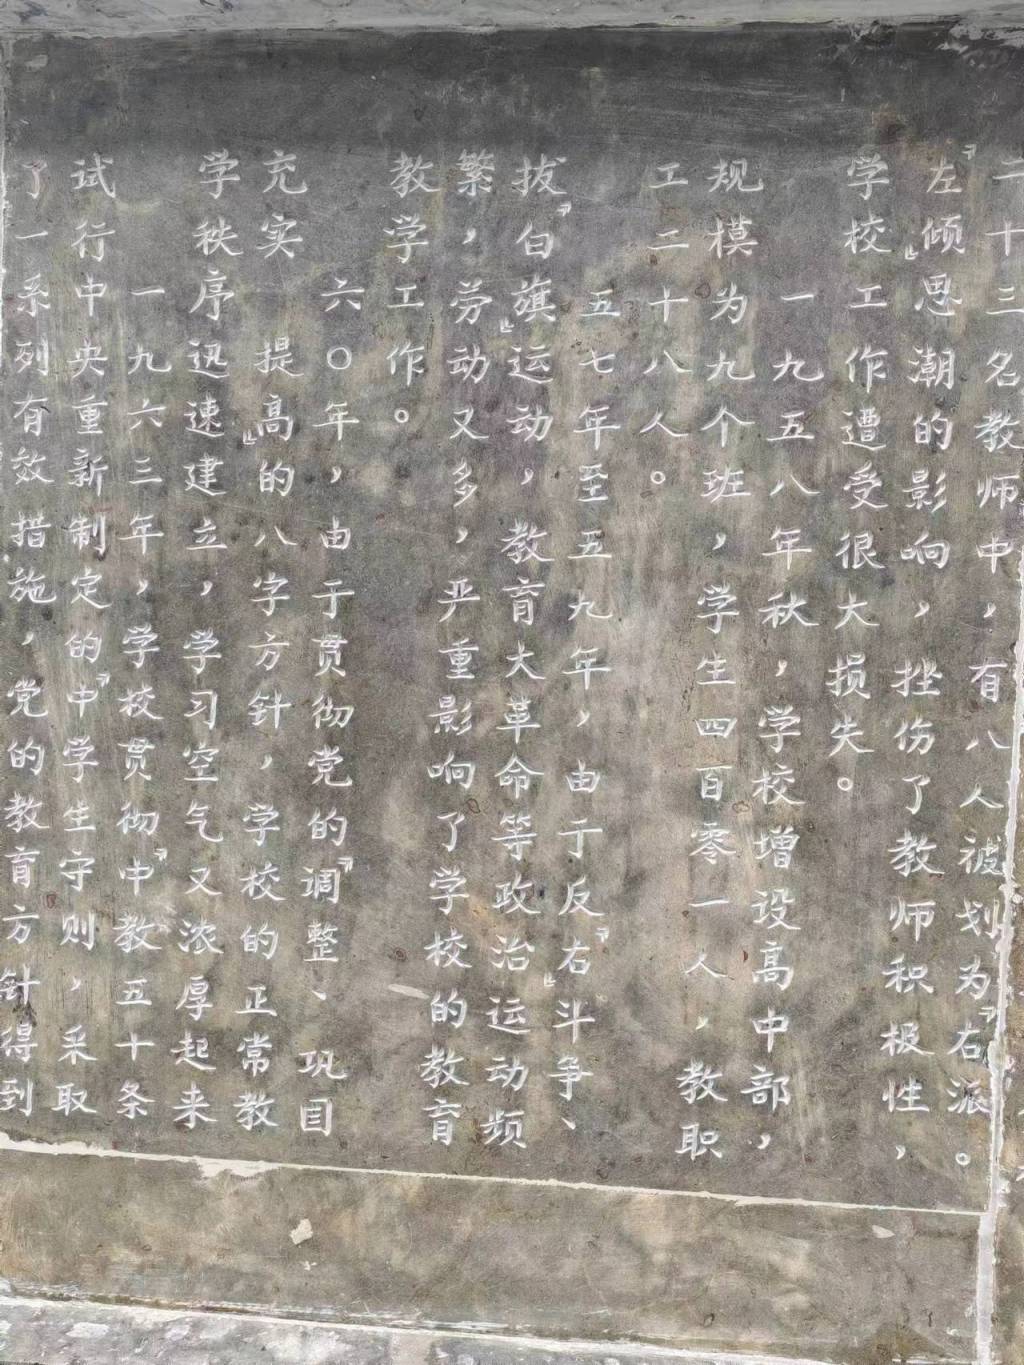 二十三名教师中，有八人被划为『右派。
『左』倾思潮的影响，挫伤了教师积极性，
学校工作遭受很大损失。
一九五八年秋，学校增设高中部，
规模为九个班，学生四百零一人，教职
工二十八人。
五七年至五九年，由于反『右』斗争、
拔『白旗』运动，教育大革命等政治运动频
繁，劳动又多，严重影响了学校的教育
教学工作。
六〇年，由于贯彻党的『调整、巩固
充实 提高』的八字方针，学校的正常教
学秩序迅速建立，学习空气又浓厚起来
一九六三年，学校贯彻『中教五十条
试行中央重新制定的『中学生守则，采取
了一系列有效措施，党的教育方针得到